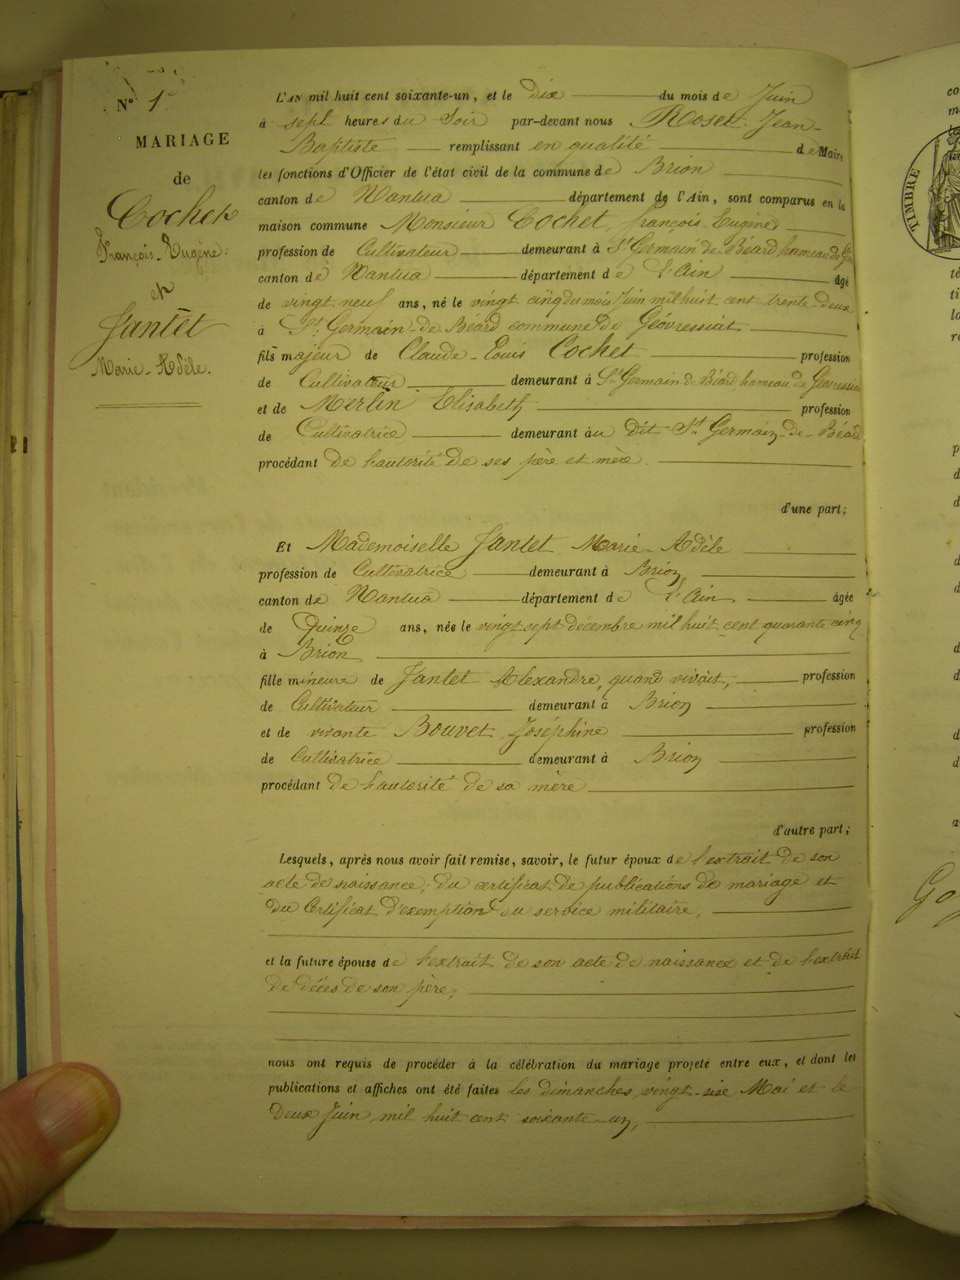 N° 1
MARIAGE
de
Cochet
François-Eugène.
et
Jantet
Marie-Adèle.
L'AN mil huit cent soixante-un, et le dix du mois de Juin
à sept heures du Soir par-devant nous Rosset Jean-
Baptiste remplissant en qualité de Maire
les fonctions d'Officier de l'état civil de la commune de Brion
canton de Nantua département de l'Ain, sont comparus en la
maison commune Monsieur Cochet, françois, Eugène,
profession de Cultivateur demeurant à St Germain de Béard hameau de
canton de Nantua département de L'ain âgé
de vingt neuf ans, né le vingt cinq du mois Juin mil huit cent trente deux
à St. Germain-de Béard commune de Géovressiat
fils majeur de Claude-Louis Cochet profession
de Cultivateur demeurant à St Germain d. Béard hameau de Geovressiat
et de Merlin Elisabeth profession
de Cultivatrice demeurant au Dit St Germain-de-Béard
procédant de l'autorité de ses père et mère
d'une part;
Et Mademoiselle Jantet Marie-Adèle
profession de Cultivatrice demeurant à Brion,
canton de Nantua département de L'Ain, âgée
de Quinze ans, née le vingt sept decembre mil huit cent quarante cinq
à Brion
fille mineure de Jantet Alexandre, quand vivait, profession
de Cultivateur demeurant à Brion
et de vivante Bouvet Joséphine profession
de Cultivatrice demeurant à Brion
procédant de l'autorité de sa mère
d'autre part;
Lesquels, après nous avoir fait remise, savoir, le futur époux de l'extrait de son
acte de naissance, du certificat de publications de mariage et
du Certificat d'exemption du service militaire,
et la future épouse de l'extrait de son acte de naissance et de l'extrait
de décès de son père,
nous ont requis de procéder à la célébration du mariage projeté entre eux, et dont les
publications et affiches ont été faites les dimanches vingt-six Mai et le
deux Juin mil huit cent soixante-un,
TIMBRE